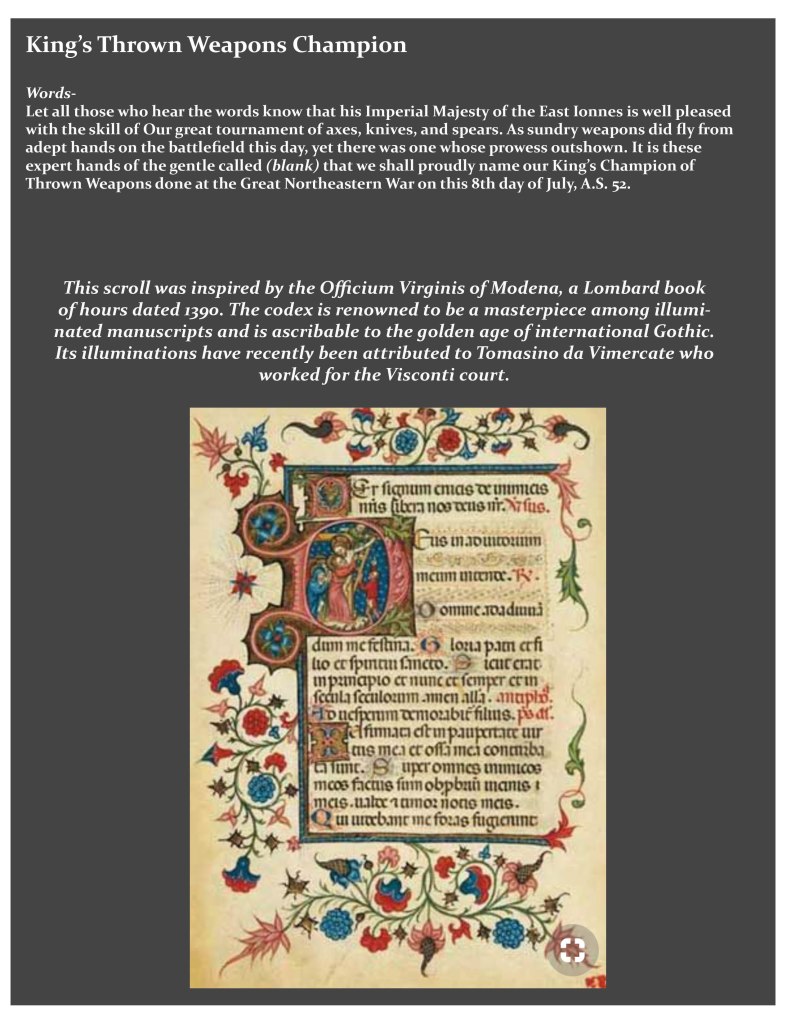 King’s Thrown Weapons Champion
Words-
Let all those who hear the words know that his Imperial Majesty of the East Ionnes is well pleased
with the skill of Our great tournament of axes, knives, and spears. As sundry weapons did fly from
adept hands on the battlefield this day, yet there was one whose prowess outshown. It is these
expert hands of the gentle called (blank) that we shall proudly name our King’s Champion of
Thrown Weapons done at the Great Northeastern War on this 8th day of July, A.S. 52.
This scroll was inspired by the Officium Virginis of Modena, a Lombard book
of hours dated 1390. The codex is renowned to be a masterpiece among illumi-
nated manuscripts and is ascribable to the golden age of international Gothic.
Its illuminations have recently been attributed to Tomasino da Vimercate who
worked for the Visconti court.
Er signum crucis de inimicis
nris libera nos deus nr.
Eus in adiutorium
meum intende.
Domine ad adiuua
dum me festina. Gloria patri et fi
lio et spiritui sancto. Sicut erat
in principio et nunc et semper et in
secula seculorum amen alla.
filius.
est in paupertate uir
tus mea et ossa mea conturba
ta sunt. Super omnes inimicos
meos factus sum
meis. timor notis meis.
Qui uidebant me foras fugierunt